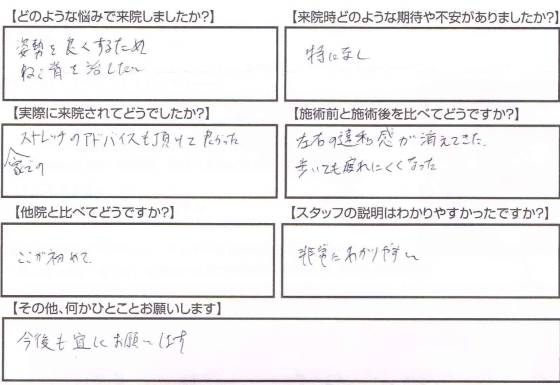 【どのような悩みで来院しましたか?】
姿勢を良くするため
ねこ背を治したい
【来院時どのような期待や不安がありましたか?】
特になし
【実際に来院されてどうでしたか?】
ストレッチのアドバイスも頂けて良かった
家での
【施術前と施術後を比べてどうですか?】
左右の違和感が消えてきた。
歩いても疲れにくくなった
【他院と比べてどうですか?】
ここが初めて
【スタッフの説明はわかりやすかったですか?】
非常にわかりやすい
【その他、何かひとことお願いします】
今後も宜しくお願いします